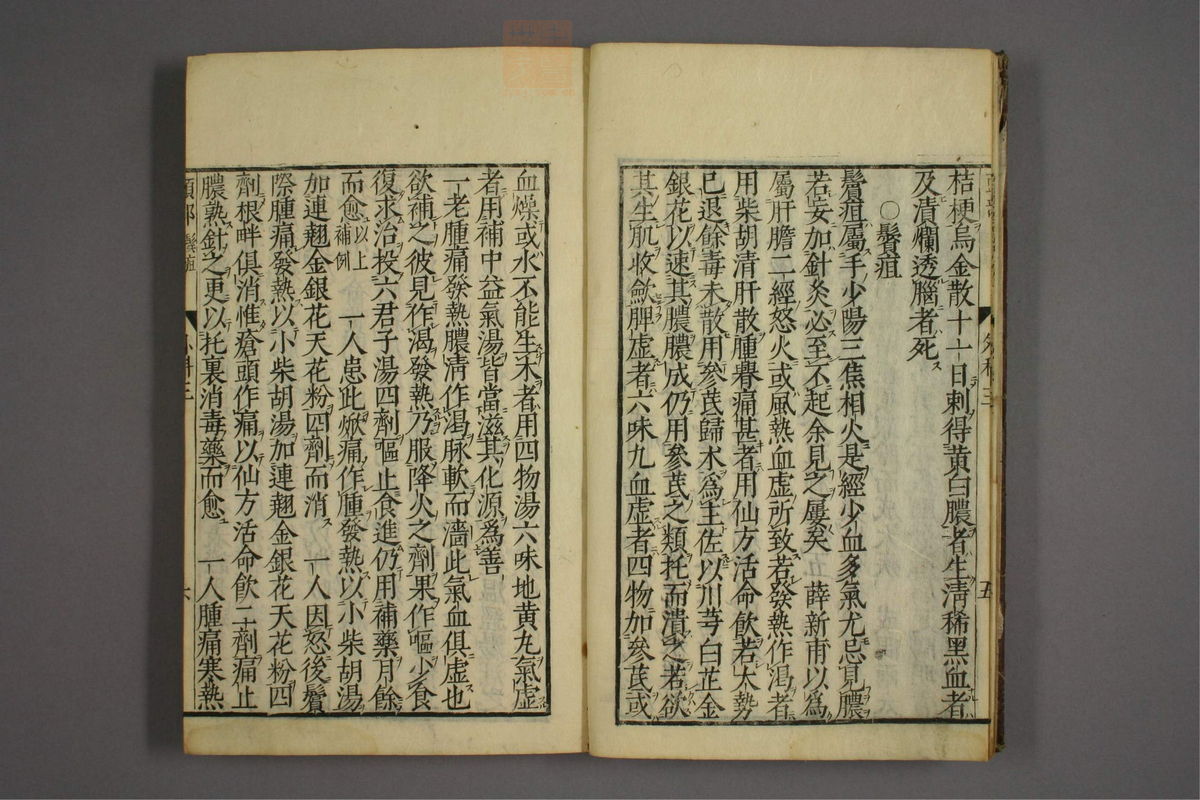 桔梗烏金散十一日刺得黃白膿者生清稀黑血者
及潰爛透腦者死
〇鬢疽
鬢疽屬手少陽三焦相火是經少血多氣尤忌見膿
若妄加針灸必至不起余見之屢矣 薛新甫以爲
屬肝膽二經怒火或風熱血虛所致若發熱作渴者
用柴胡清肝散腫癢痛甚者用仙方活命飲若大勢
已退餘毒未散用參芪歸朮爲主佐以川芎白芷金
銀花以速其膿膿成仍用參芪之類托而潰之若欲
其生肌收斂脾虛者六味九血虛者四物加參芪或
血燥或水不能生木者用四物湯六味地黃九氣虛
者用補中益氣湯皆當滋其化源爲善
一老腫痛發熱膿清作渴脉軟而濇此氣血俱虛也
欲補之彼見作渴發熱乃服降火之劑果作嘔少食
復求治投六君子湯四劑嘔止食進仍用補藥月餘
而愈以上補例 一人患此焮痛作腫發熱以小柴胡湯
加連翹金銀花天花粉四劑而消 一人因怒後鬢
際腫痛發熱以小柴胡湯加連翹金銀花天花粉四
劑根畔俱消惟瘡頭作痛以仙方活命飲二劑痛止
膿熟針之更以托裏消毒藥而愈 一人腫痛寒熱
頭部 鬢疽 外科三 六
外科三 五